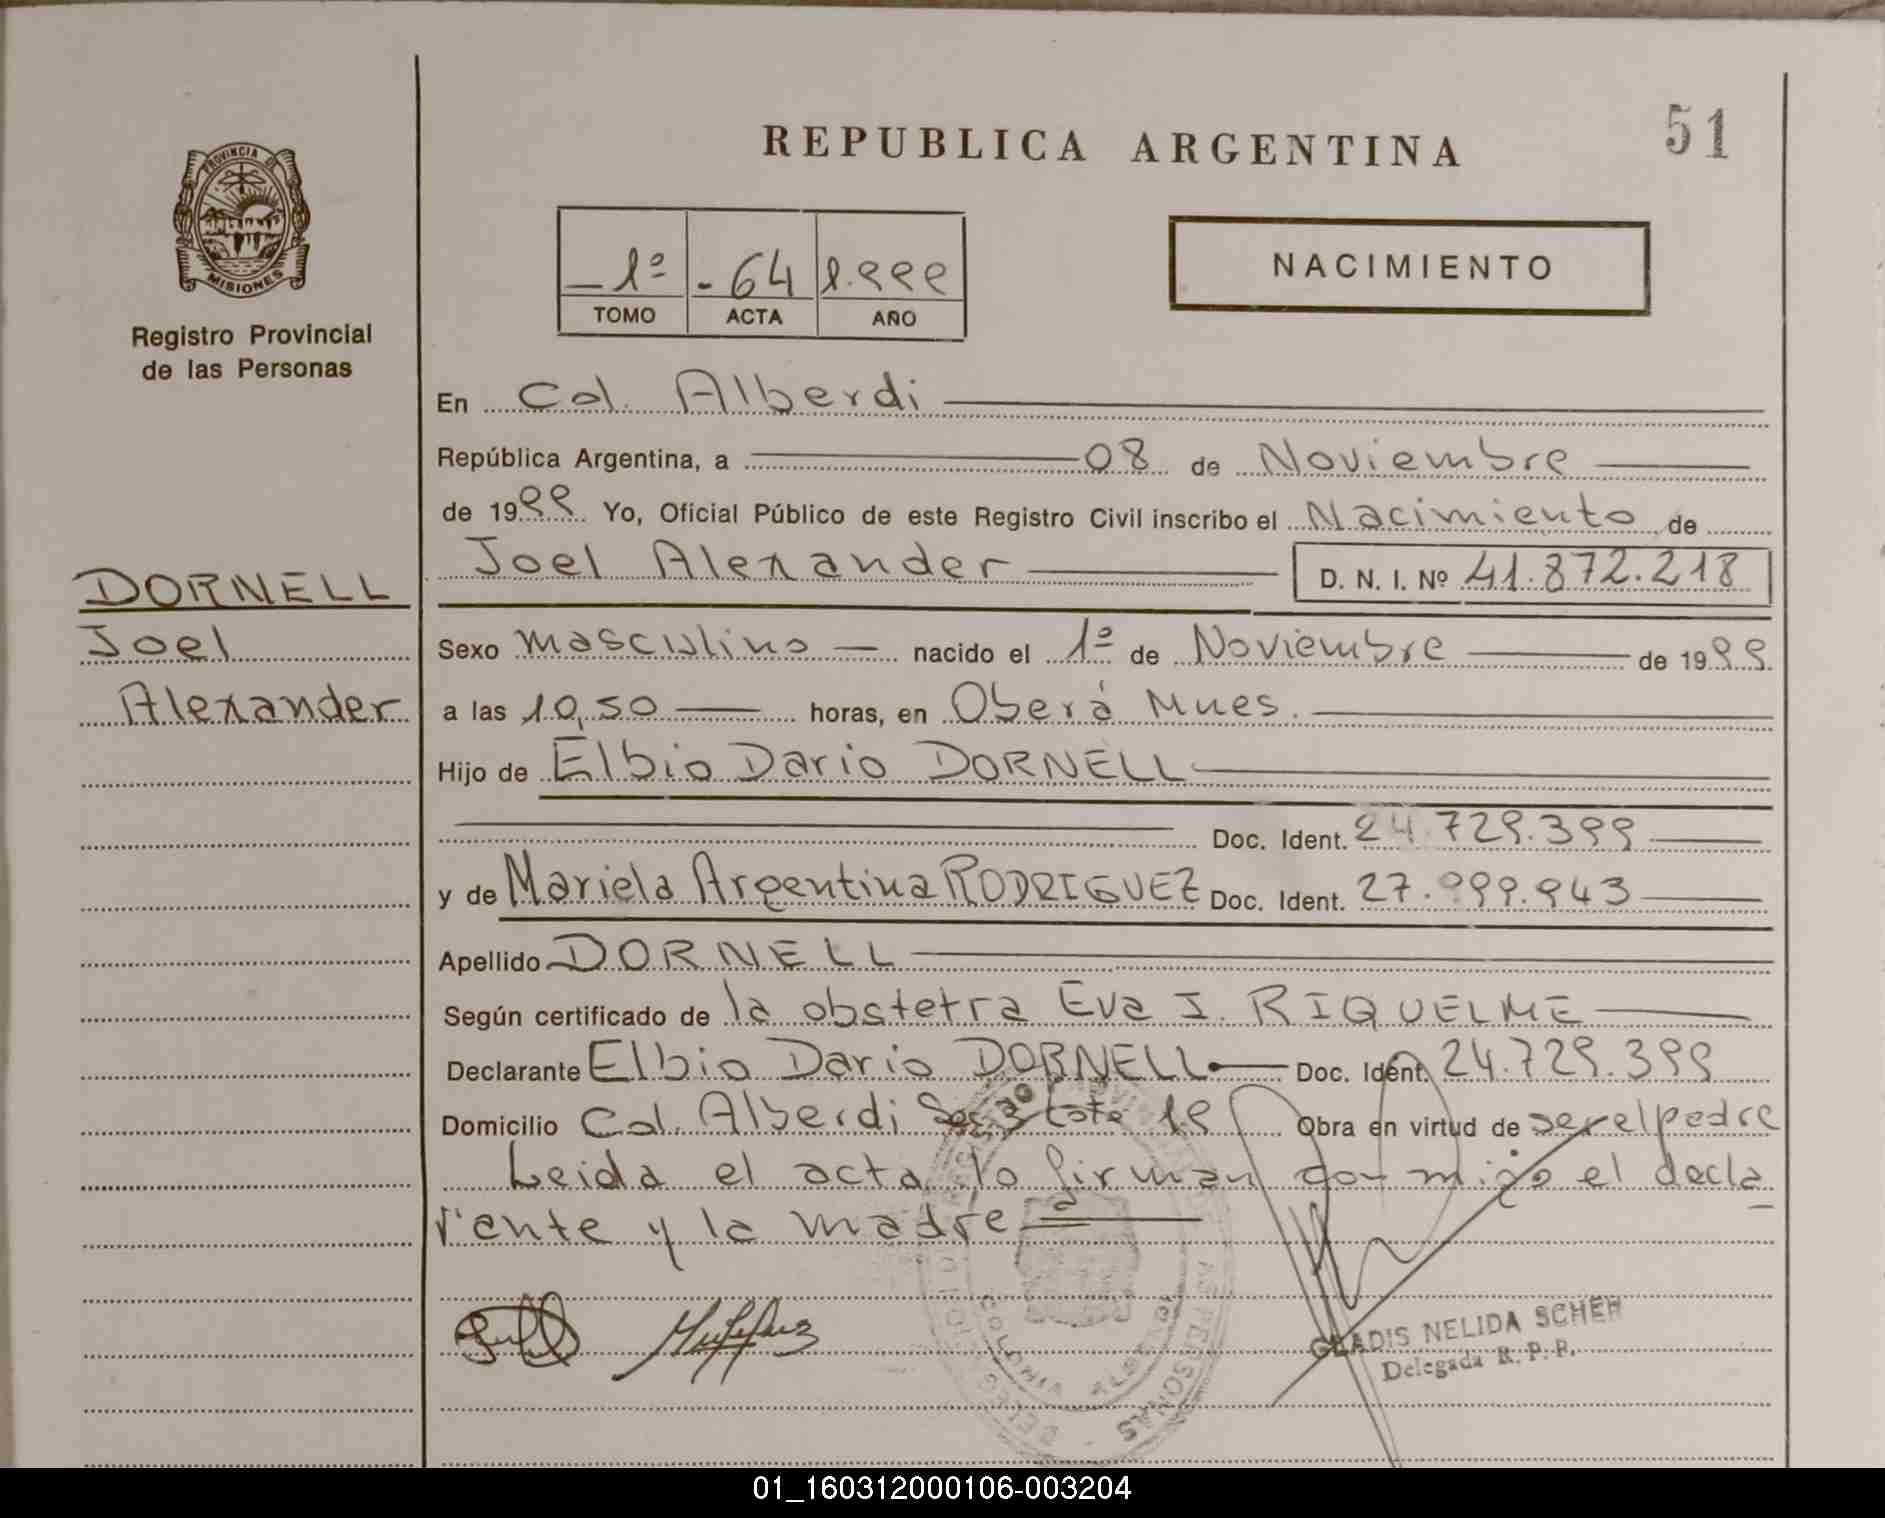 51
REPUBLICA ARGENTINA
PROVINCIA DE
MISIONES
Registro Provincial
de las Personas
1º 64 1.999
TOMO ACTA AÑO
NACIMIENTO
En Col. Alberdi
República Argentina, a 08 de Noviembre
de 1999 Yo, Oficial Público de este Registro Civil inscribo el Nacimiento de
Joel Alexander D. N. I. Nº 41.872.218
DORNELL
Joel
Alexander
Sexo masculino nacido el 1º de Noviembre de 1999
a las 10,50 horas, en Oberá Mnes.
Hijo de Elbio Dario DORNELL
Doc. Ident. 24.729.399
y de Mariela Argentina RODRIGUEZ Doc. Ident. 27.999.943
Apellido DORNELL
Según certificado de la obstetra Eva I. RIQUELME
Declarante Elbio Dario DORNELL Doc. Ident. 24.729.399
Domicilio Col. Alberdi Sec. Lote 19 Obra en virtud de ser el padre
Leida el acta lo firman con migo el decla
rente y la madre
GLADIS NELIDA SCHEH
Delegada R. P. P.
COLONIA ALBERDI
PERSONAS
01_160312000106-003204